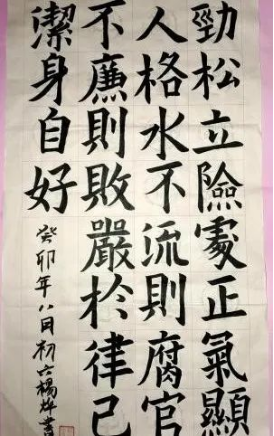 勁松立險處正氣顯
人格水不流則腐官
不廉則敗嚴於律己
潔身自好
癸卯年八月初六楊烨書